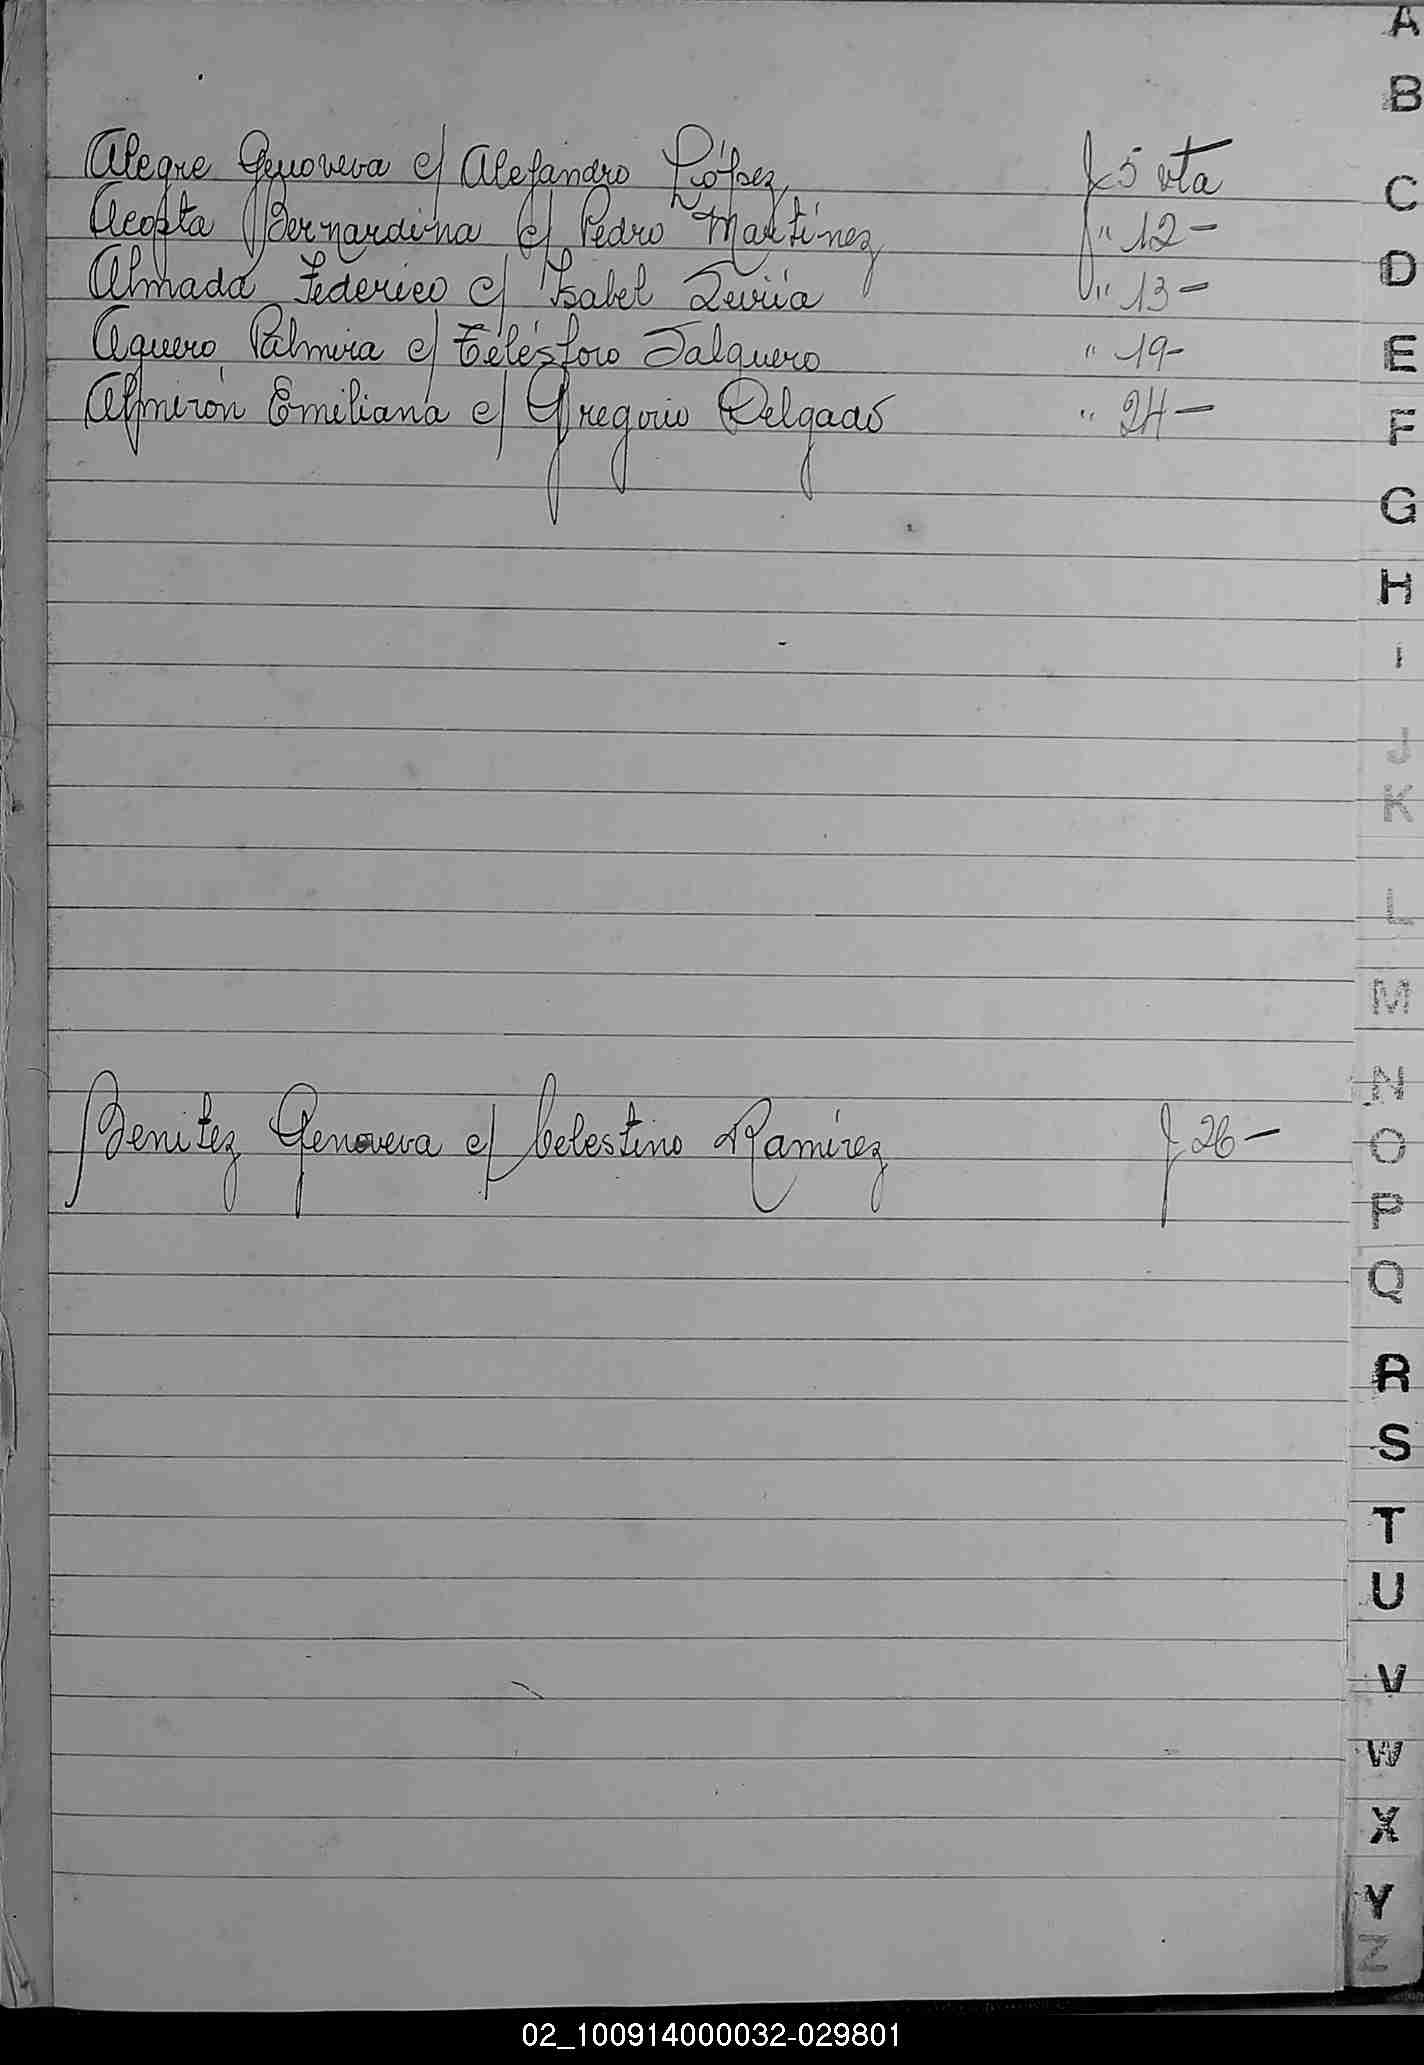 Alegre Genoveva c/ Alejandro López f 5 vta
Acosta Bernardina c/ Pedro Martínez " 12 -
Almada Federico c/ Isabel " 13 -
Aguero Palmira c/ Telésforo Jalquero " 19 -
Almirón Emiliana c/ Gregorio Delgado " 24 -
Benitez Genoveva c/ Celestino Ramírez f 26 -
A
B
C
D
E
F
G
H
I
J
K
L
M
N
O
P
Q
R
S
T
U
V
W
X
Y
Z
02_100914000032-029801